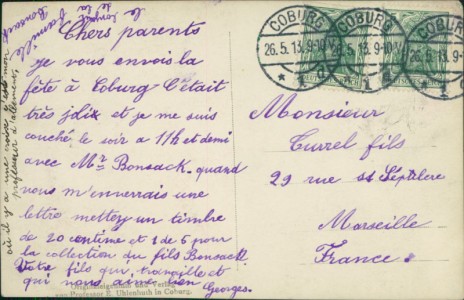 le
cortège
de la
famille
Bonsack
Chers parents
je vous envois la
fête à Coburg C'était
très jolix et je me suis
couché le soir a 11h et demi
avec Mr Bonsack. quand
vous m'enverrais une
lettre mettez un timbre
de 20 centime et 1 de 5 pour
la collection du fils Bonsack
Votre fils qui travaille et
qui vous aime bien
Georges.
où il y a une croix c'est mon
professeur d'allemand
COBURG
26.5.13.9-10V.
* 1
COBURG
26.5.13.9-10V.
* 1
Monsieur
Currel fils
29 rue st
Marseille
France
Professor E. Uhlenhuth in Coburg.